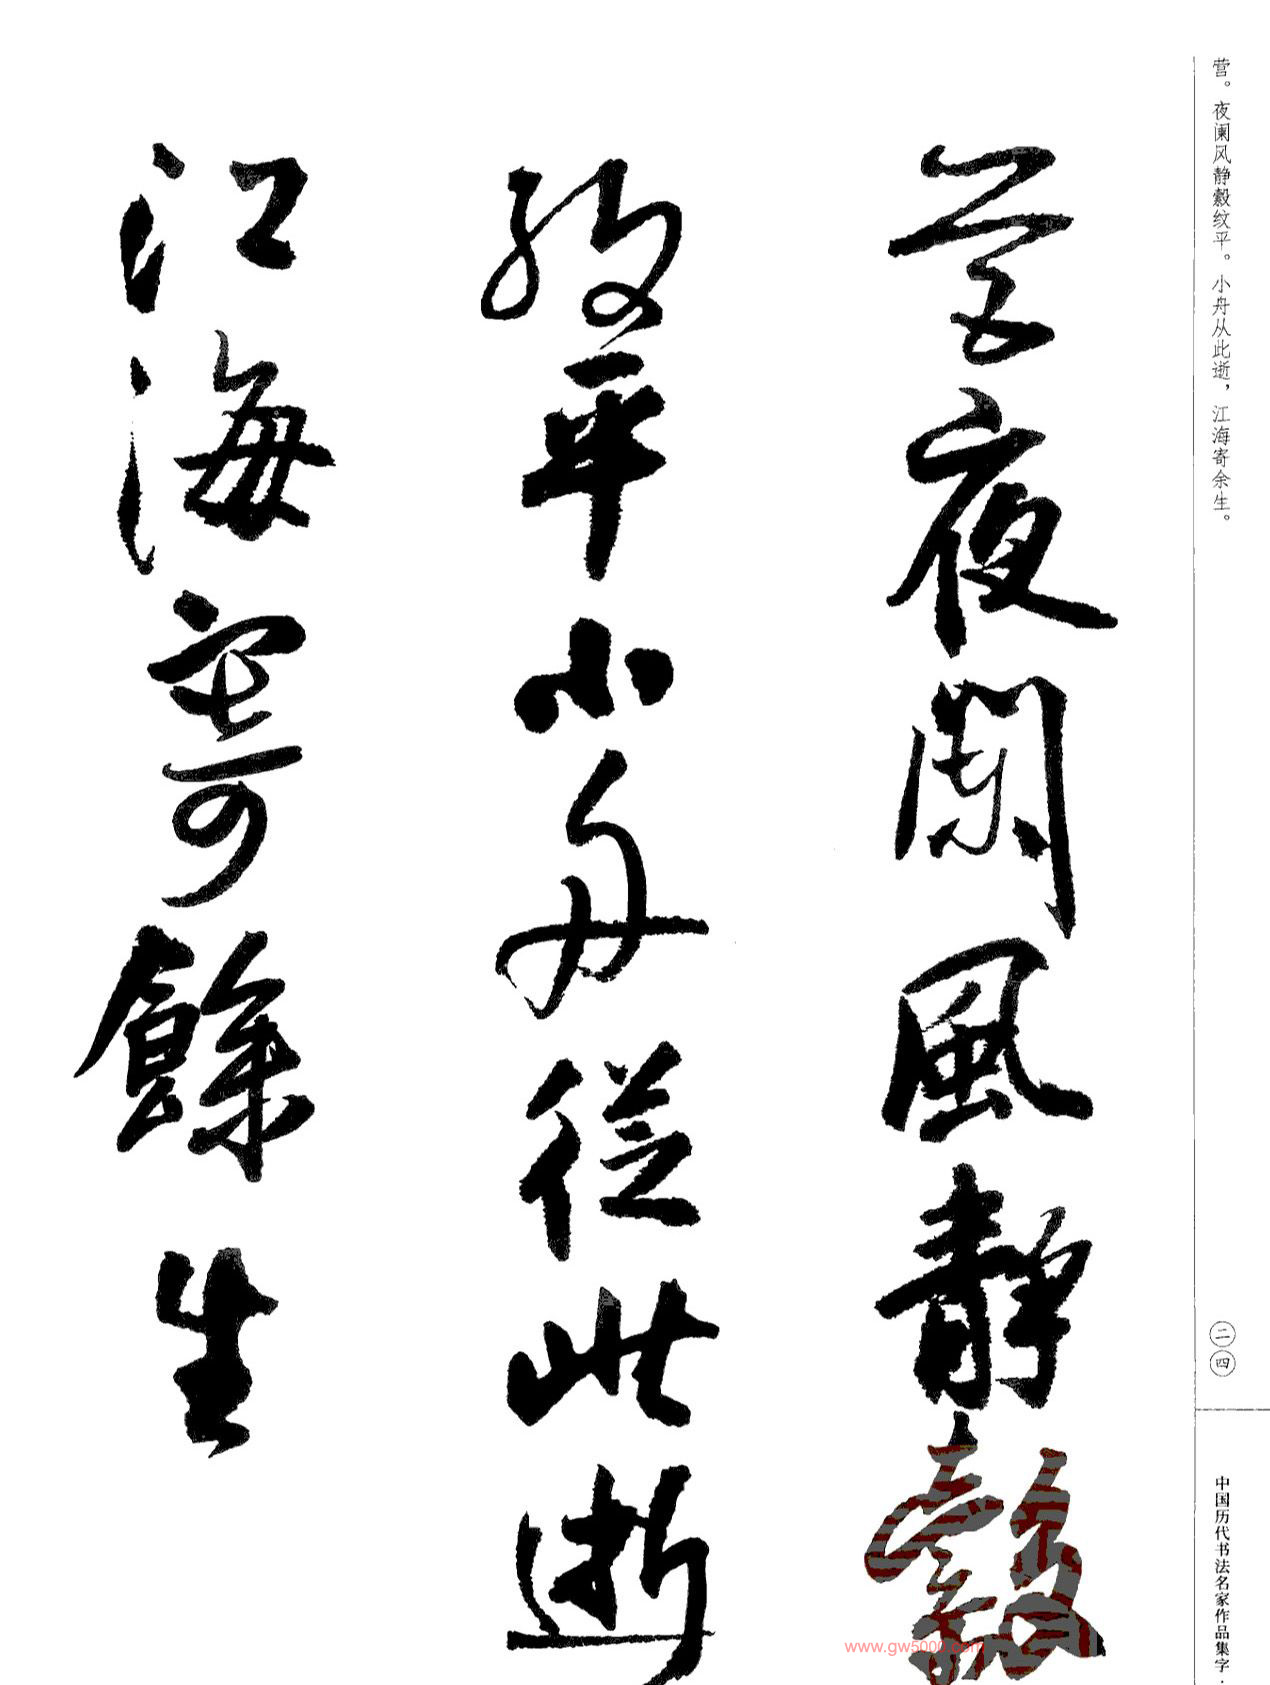 营。夜阑风静縠纹平。小舟从此逝，江海寄余生。
二四
中国历代书法名家作品集字·
营夜闌風静縠
紋平小舟從此逝
江海寄餘生
www.gw5000.com